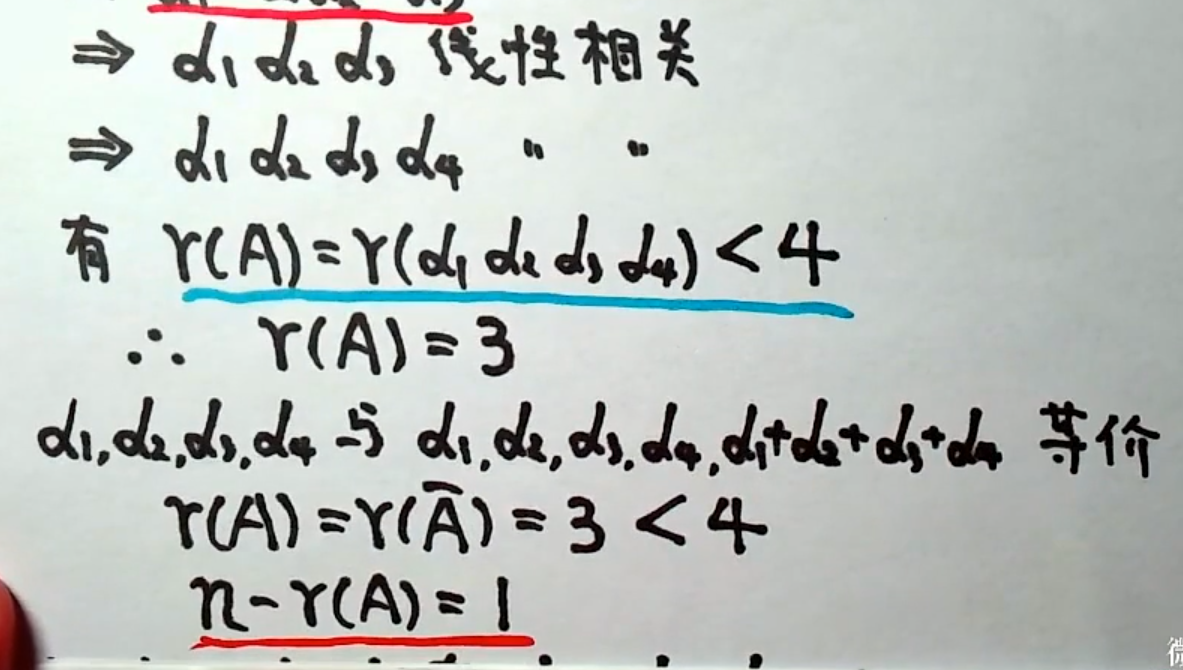 ⇒ α₁ α₂ α₃ 线性相关
⇒ α₁ α₂ α₃ α₄ " "
有 r(A)=r(α₁ α₂ α₃ α₄)<4
∴ r(A)=3
α₁,α₂,α₃,α₄ 与 α₁,α₂,α₃,α₄,α₁+α₂+α₃+α₄ 等价
r(A)=r(Ā)=3<4
n-r(A)=1
微